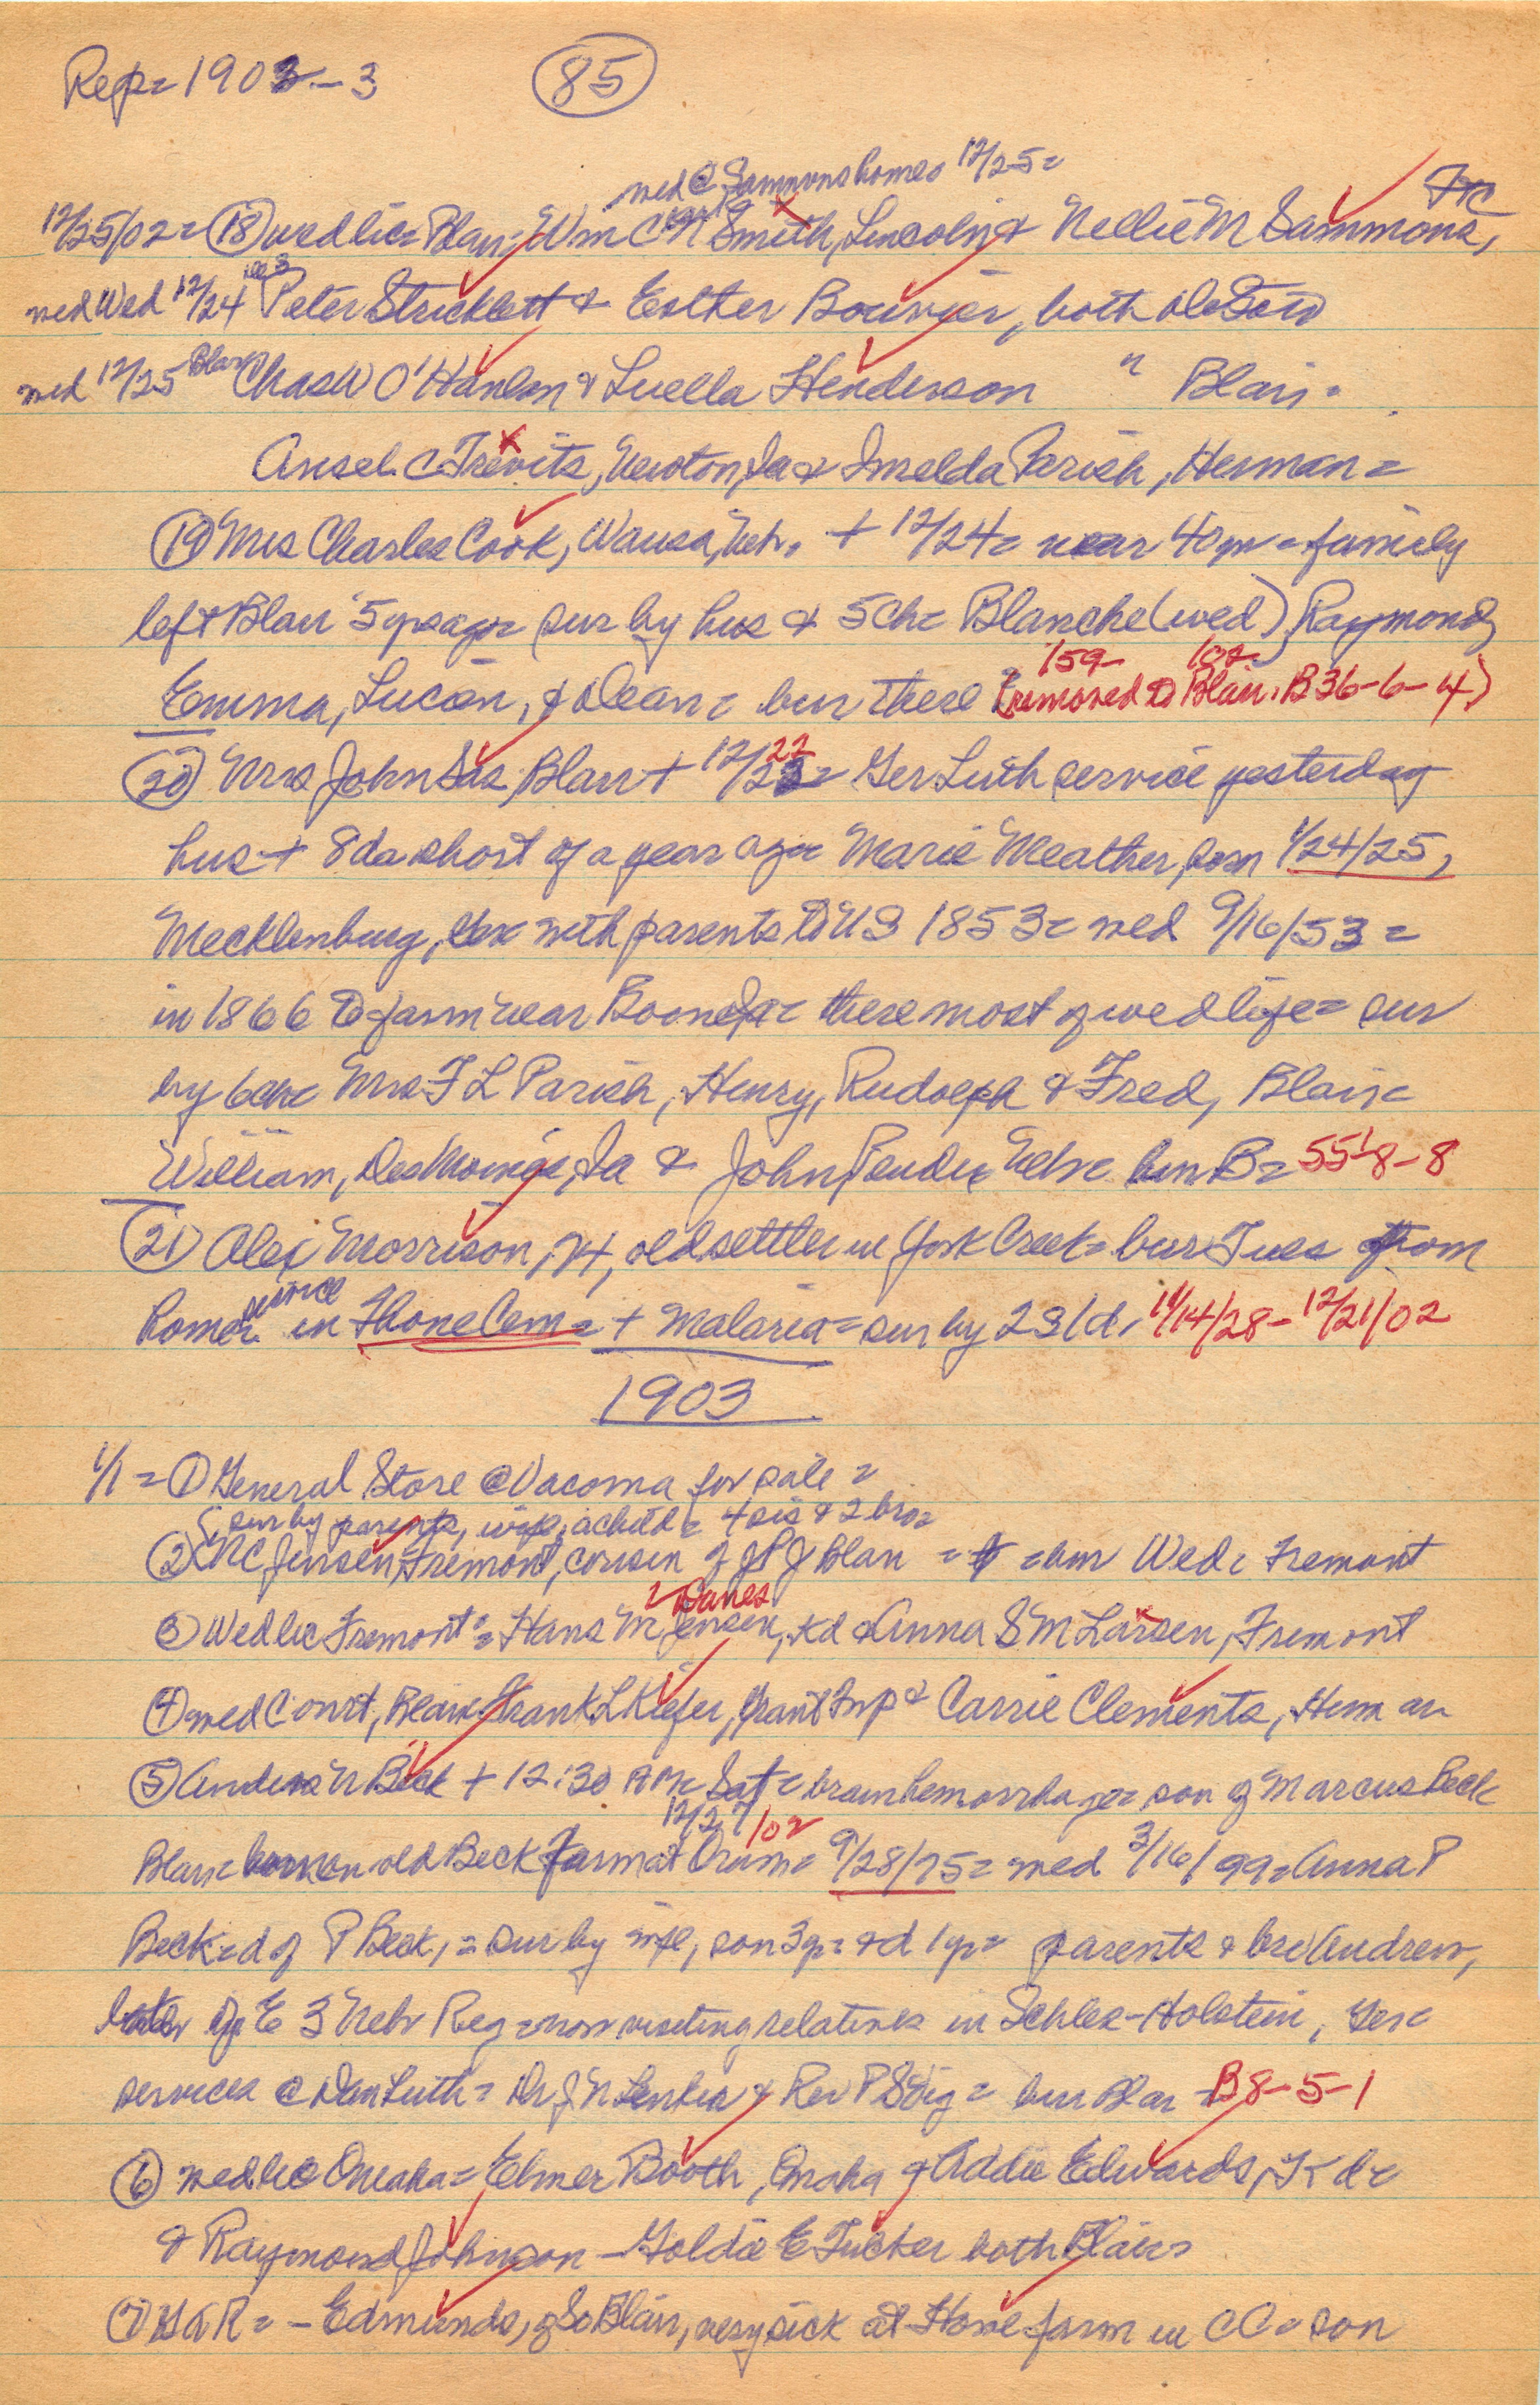 Rep= 1902-3 (85)
wed @ Sammons home 12/25=
12/25/02= (18) wed lic= Blair= Wm C N Smith, Lincoln & Nellie M Sammons, Ftc
wed Wed 12/24 Peter Stricklett & Esther Bouvier, both DeSoto
wed 12/25 Blair Chas W O'Hanlon & Luella Henderson " Blair=
Ansel C Trevits, Newton, Ia & Imelda Parish, Herman=
(19) Mrs Charles Cook, Wausa, Neb. + 12/24= near 40 yr= family
left Blair 5 yrs ago= sur by hus & 5 ch= Blanche (wed) Raymond,
159 102
Emma, Lucian, & Dean= bur there (removed to Blair. B 36-6-4)
(20) Mrs John Sas, Blair + 12/22= Ger Luth service yesterday
hus + 8 da short of a year ago= Marie Meather, born 1/24/25,
Mecklenburg, Ger= with parents to US 1853= wed 9/16/53=
in 1866 to farm near Boone, Ia= there most of wed life= sur
by 6 ch= Mrs F L Parish, Henry, Rudolph & Fred, Blair=
William, Des Moines, Ia & John, Pender Nebr= bur B= 55-8-8
(21) Alex Morrison, 74, old settler in York Creek= bur Tues from
home service in Thone Cem= + malaria= sur by 2 s 1 d. 11/14/28- 12/21/02
1903
1/1= (1) General Store @ Vacoma for sale=
sur by parents, wife, a child= 4 sis & 2 bro=
(2) N C Jensen, Fremont, cousin of J P J Blair = + = bur Wed= Fremont
Danes
(3) Wed lic Fremont= Hans M Jensen, Kd & Anna S M Larsen, Fremont
(4) wed Court, Blair= Frank L Kiefer, Grant Twp & Carrie Clements, Herman
(5) Anders N Beck + 12:30 AM= Sat= brain hemorrhage= son of Marcus Beck
12/27/02
Blair= born on old Beck farm at Orum= 9/28/75= wed 3/16/99= Anna P
Beck= d of P Beck,= sur by wife, son 3 yr= & d 1 yr= parents & bro Andrew,
of E 3 Nebr Reg= now visiting relatives in Schles-Holstein, Ger=
services @ Dan Luth= Dr J N & Rev P S Vig= bur Blair - B 8-5-1
(6) wed lic Omaha= Elmer Booth, Omaha & Addie Edwards, Kd=
& Raymond Johnson - Goldie E Tucker both Blair=
(7) GAR= - Edmunds, of So Blair, very sick at Howe farm in CC= son